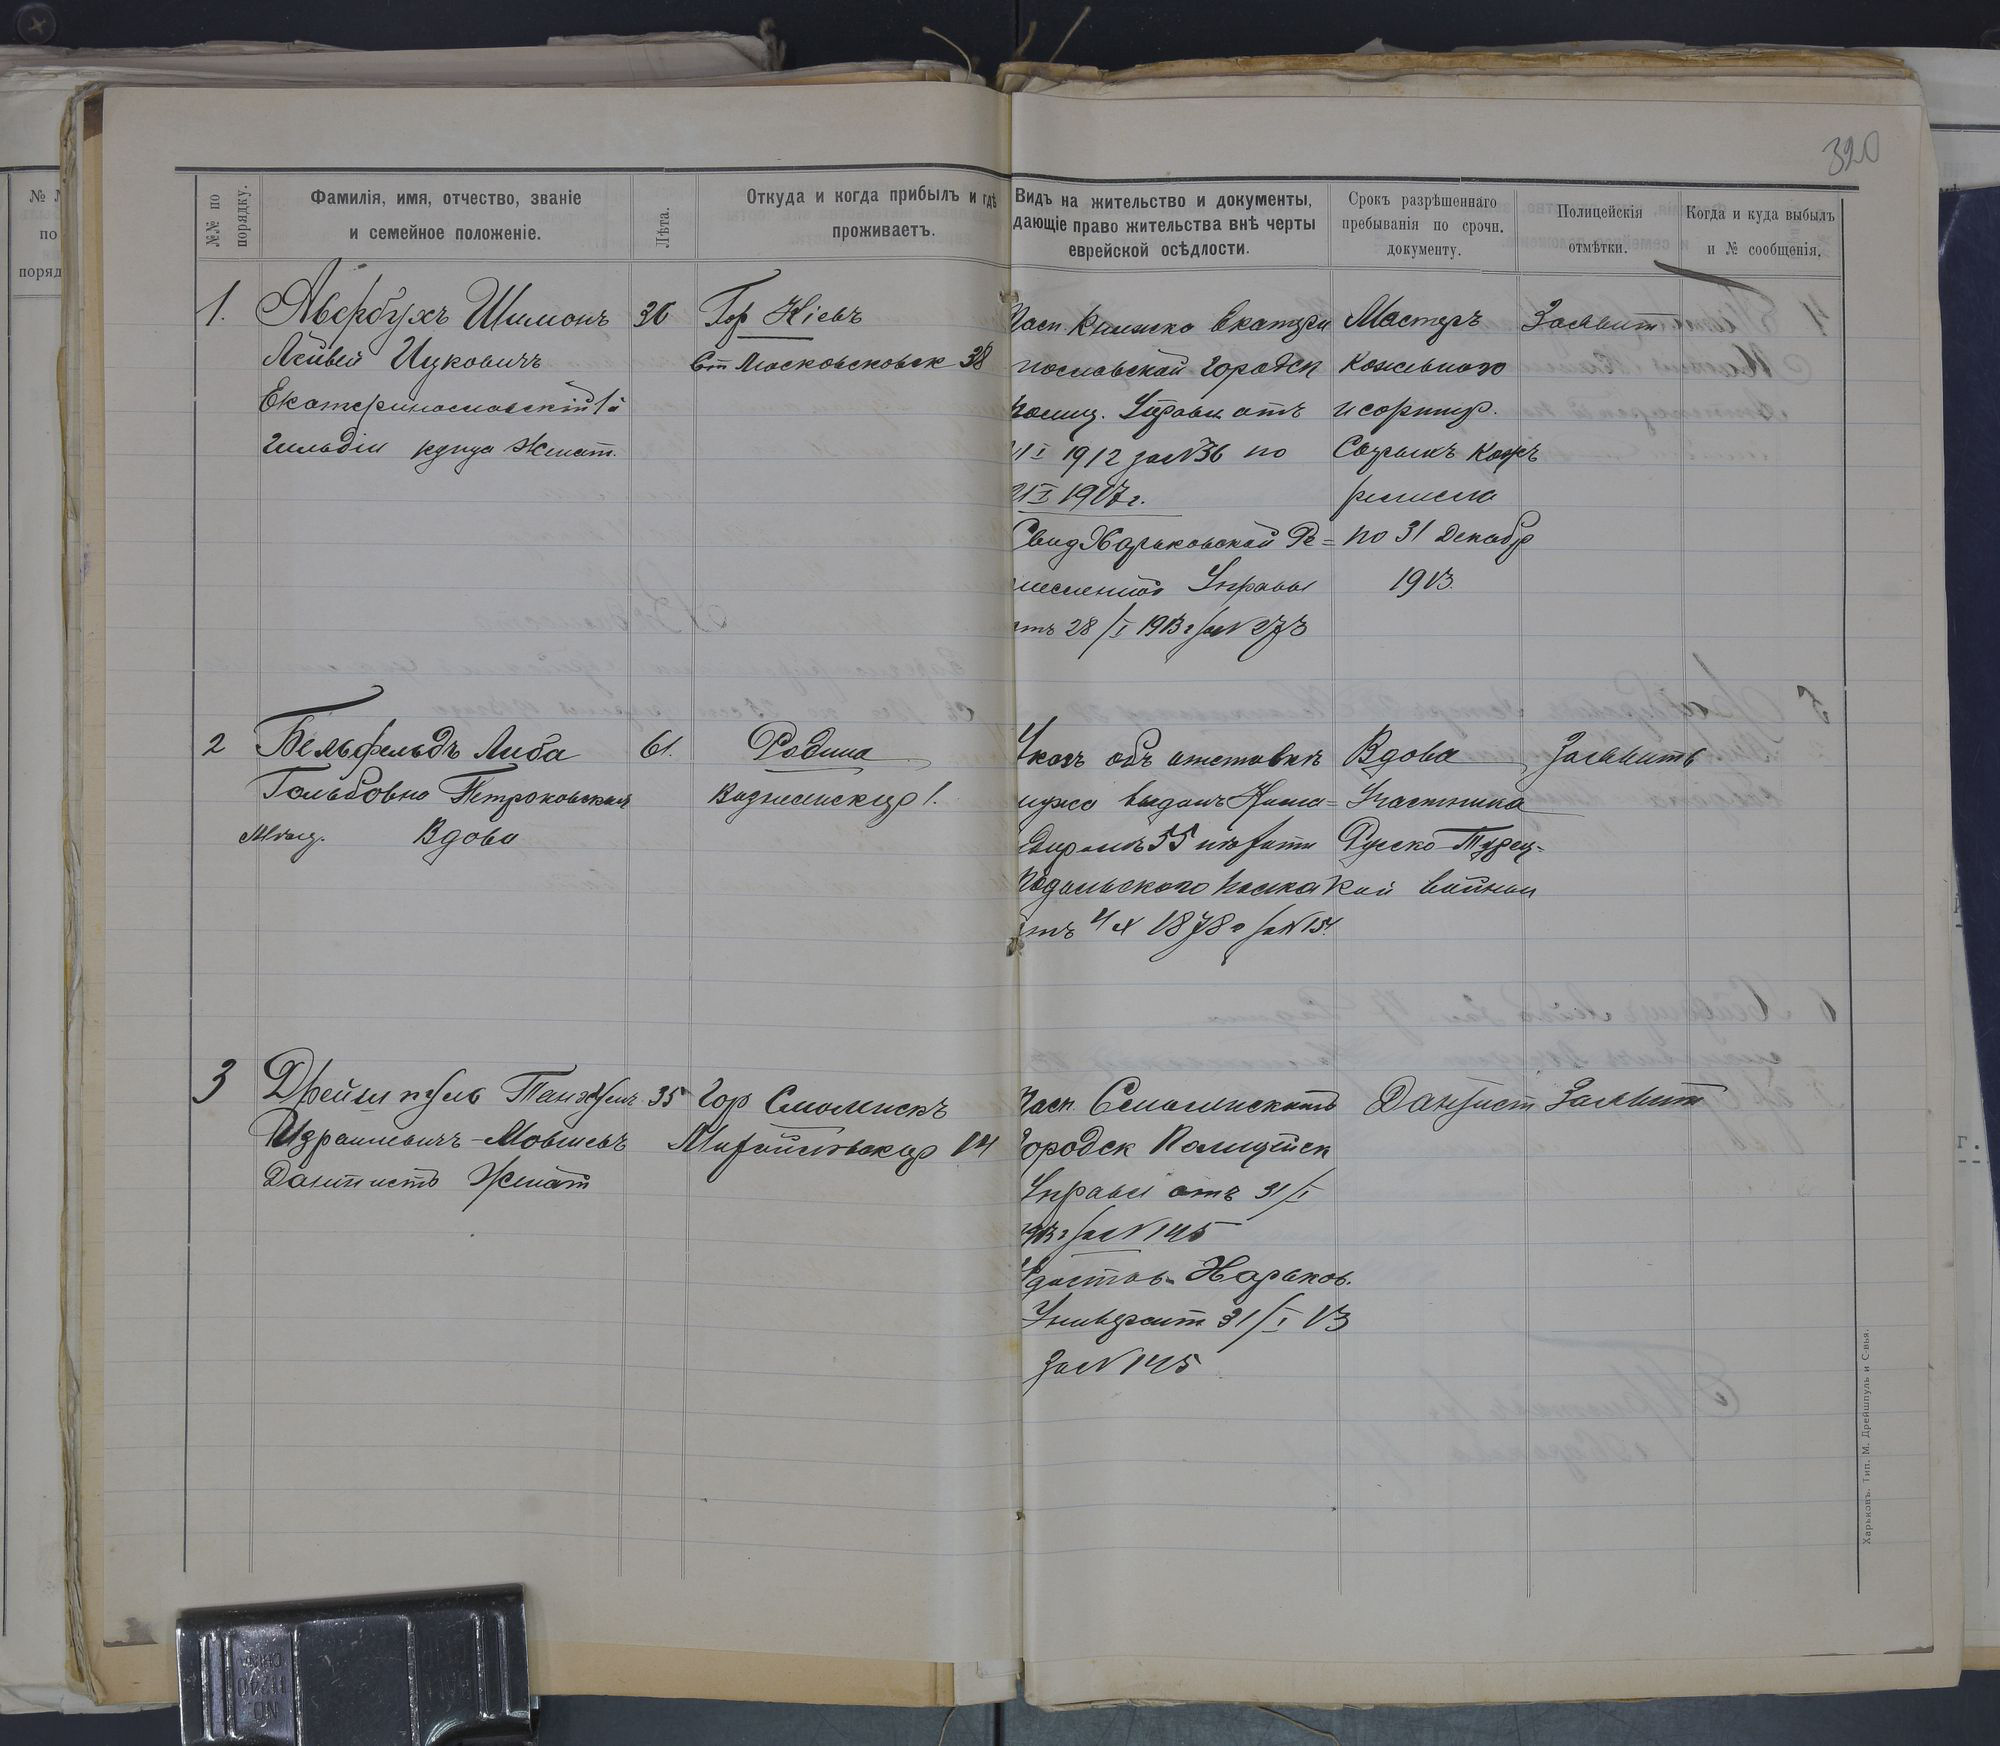 320
№№ по порядку.
Фамилія, имя, отчество, званіе
и семейное положеніе.
Лѣта.
Откуда и когда прибылъ и гдѣ
проживаетъ.
Видъ на жительство и документы,
дающіе право жительства внѣ черты
еврейской осѣдлости.
Срокъ разрѣшеннаго
пребыванія по срочн.
документу.
Полицейскія
отмѣтки.
Когда и куда выбылъ
и № сообщенія.
1. Авербухъ Шимонъ
Лейвей Ицковичъ
Екатеринославскій 1й
гильдіи купца Женат.
36
Гор Кіевъ
Ст Московсковск 38
Пасп. книжка Екатери
нославской городск
Полиц. Управы отъ
1912 за №36 по
1917г.
Свид Харьковской Ре=
месленной Управы
отъ 28/I 1913 г за № 273
Мастеръ
Кожевного
и сортир.
Сырыхъ Кожъ
ремесла
по 31 Декабр
1913.
2 Бельфельдъ Либа
Петроковская
Мѣщ. Вдова
61.
Родина
Вознесенскпл 1.
Указъ объ отставкѣ
мужа выданъ Кома=
диромъ 55 пѣхоти
Подольскаго полка
отъ 1878 г за №154
Вдова
Участника
Русско-Турец-
кой войны
3 Дрейшпуль Танхумъ
Израилевичъ-Мовшевъ
Дантистъ Женат
35
Гор Смоленскъ
Михайловскпл 14
Пасп. Смоленскаго
Городск Полицейск
Управы отъ 31/I
1913 г за № 145
Удостов. Харьков.
Университ 31/I 13
За № 145
Дантист
Харьковъ. Тип. М. Дрейшпуль и С-вья.